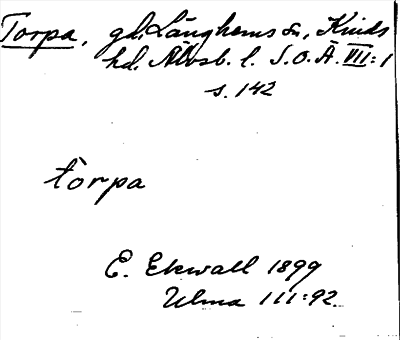 Torpa, gd. Länghems sn, Kinds
hd. Älvsb. l. S.O.Ä. VII:1
s. 142
tòrpa
E. Ekwall 1899
Ulma 111:92.